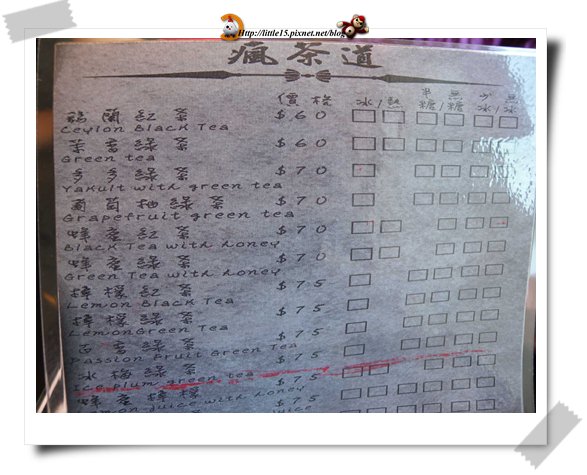 Http://little15.pixnet.net/blog
瘋茶道
價格 冰/熱 半糖/無糖 少冰/無冰
錫蘭紅茶 $60
Ceylon Black Tea
茉香綠茶 $60
Green tea
多多綠茶 $70
Yakult with green tea
葡萄柚綠茶 $70
Grapefruit green tea
蜂蜜紅茶 $70
Black Tea with honey
蜂蜜綠茶 $70
Green Tea with honey
檸檬紅茶 $75
Lemon Black Tea
檸檬綠茶 $75
LemonGreen Tea
百香綠茶 $75
Passion Fruit Green Tea
冰梅綠茶 $75
Ice plum green tea
蜂蜜檸檬 $75
Lemon juice with honey
juice